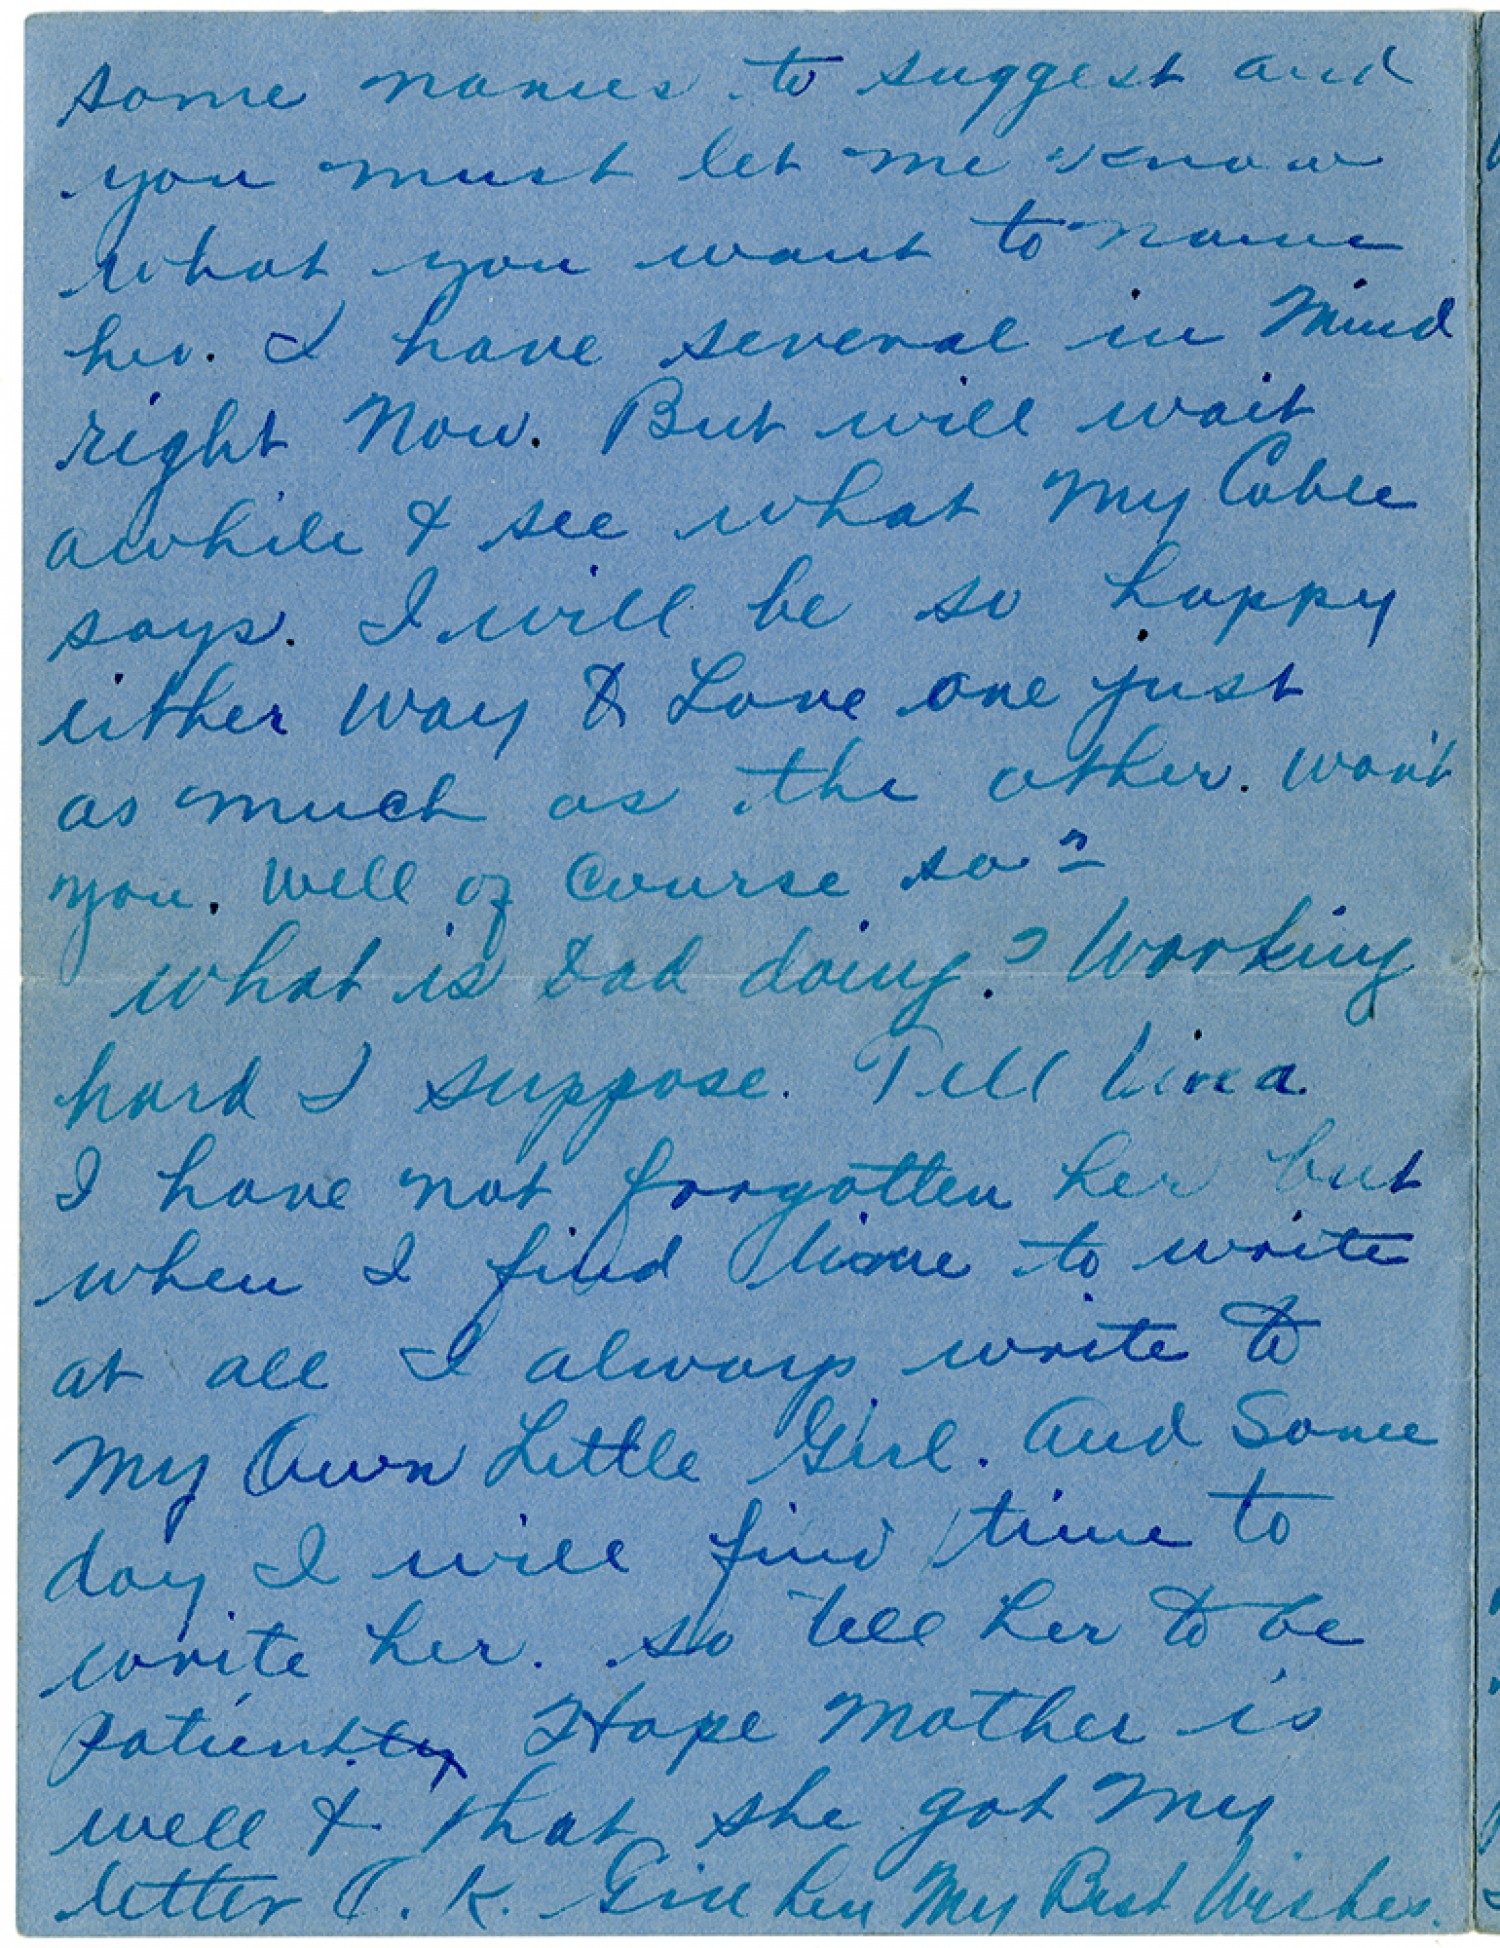 some names to suggest and
you must let me know
what you want to name
her. I have several in Mind
right Now. But will wait
awhile & see what My Cable
says. I will be so happy
either Way & Love one just
as much as the other. Won't
you. Well of Course so?
What is Dad doing? Working
hard I suppose. Tell
I have not forgotten her but
when I find time to write
at all I always write to
My Own Little Girl. And Some
day I will find time to
write her. so tell her to be
patient Hope Mother is
well & that she got My
letter O.K. Give her My Best Wishes.